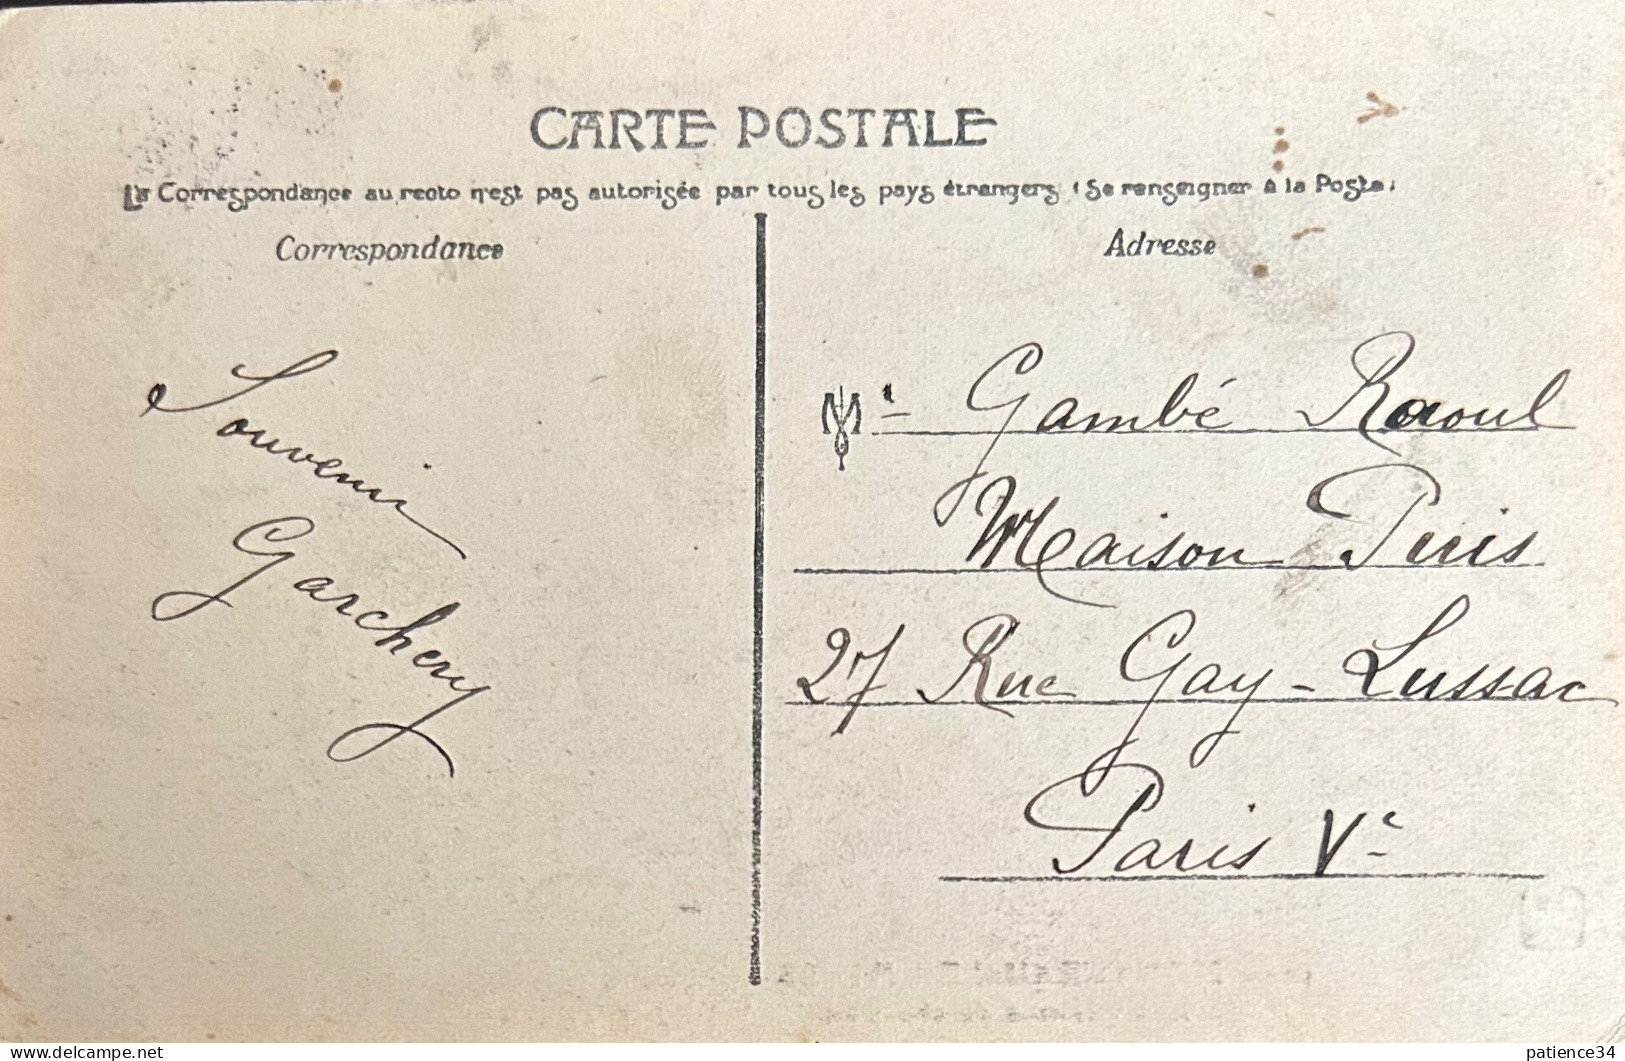 CARTE POSTALE
La Correspondance au recto n'est pas autorisée par tous les pays étrangers (Se renseigner à la Poste)
Correspondance
Adresse
Souvenir
Garchery
Mr Gambé Raoul
Maison Puris
27 Rue Gay-Lussac
Paris Ve
delcampe.net
patience34